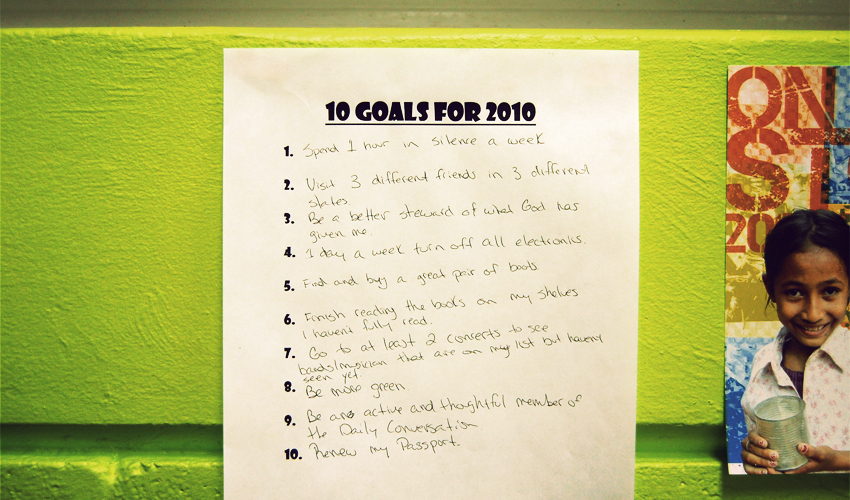 10 GOALS FOR 2010
1. Spend 1 hour in silence a week
2. Visit 3 different friends in 3 different
states
3. Be a better steward of what God has
given me.
4. 1 day a week turn off all electronics.
5. Find and buy a great pair of boots
6. Finish reading the books on my shelves
I havent fully read.
7. Go to at least 2 concerts to see
bands/musician that are on my list but havent
seen yet.
8. Be more green
9. Be an active and thoughtful member of
the Daily Conversation
10. Renew my Passport.
ON
ST
20